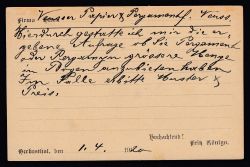 Firma Neusser Papier & Pergamentf. Neuss.
Hierdurch gestatte ich mir die er-
gebene Anfrage ob Sie Pergament
oder Pergamyn grössere Menge
in Bogen anzubieten haben
Im Falle erbitte Muster &
Preis.
Hochachtend!
Herbesthal, den 1.4. 1920 Fritz Königs.